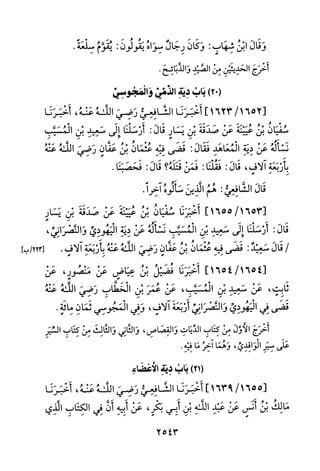 وَقَالَ ابْنُ شِهَابٍ: وَكَانَ رِجَالٌ سِوَاهُ يَقُولُونَ: يُقَوَّمُ سِلْعَةً.
أَخْرَجَ الحَدِيثَيْنِ مِنْ الصَّيْدِ وَالذَّبَائِحِ.
(٢٠) بَابُ دِيَةِ الذِّمِّيِّ وَالْمَجُوسِيِّ
[١٦٢٣/١٦٥٢] أَخْبَرَنَا الشَّافِعِيُّ رَضِيَ اللَّـهُ عَنْهُ، أَخْبَرَنَا
سُفْيَانُ بْنُ عُيَيْنَةَ عَنْ صَدَقَةَ بْنِ يَسَارٍ قَالَ: أَرْسَلْنَا إِلَى سَعِيدِ بْنِ الْمُسَيَّبِ
نَسْأَلُهُ عَنْ دِيَةِ الْمُعَاهَدِ فَقَالَ: قَضَى فِيْهِ عُثْمَانُ بْنُ عَفَّانٍ رَضِيَ اللَّهُ عَنْهُ
بِأَرْبَعَةِ آلافٍ، قَالَ: فَقُلْنَا: فَمَنْ قَتَلَهُ؟ قَالَ: فَحَصَبَنَا.
قَالَ الشَّافِعِيُّ: هُمُ الَّذِينَ سَأَلُوهُ آخِراً.
[١٦٥٥/١٦٥٣] أَخْبَرَنَا سُفْيَانُ بْنُ عُيَيْنَةَ عَنْ صَدَقَةَ بْنِ يَسَارٍ
قَالَ: أَرْسَلْنَا إِلَى سَعِيدِ بْنِ الْمُسَيَّبِ نَسْأَلُهُ عَنْ دِيَةِ الْيَهُودِيِّ وَالنَّصْرَانِيِّ،
/ قَالَ سَعِيْدٌ: قَضَى فِيهِ عُثْمَانُ بْنُ عَفَّانٍ رَضِيَ اللَّهُ عَنْهُ بِأَرْبَعَةِ آلافٍ. [٢٢٣/ب]
[١٦٥٤/١٦٥٤] أَخْبَرَنَا فُضَيْلُ بْنُ عِيَاضٍ عَنْ مَنْصُورٍ، عَنْ
ثَابِتٍ، عَنْ سَعِيدِ بْنِ الْمُسَيَّبِ، عَنْ عُمَرَ بْنِ الْخَطَّابِ رَضِيَ اللَّهُ عَنْهُ
قَضَى فِي الْيَهُودِيِّ وَالنَّصْرَانِيِّ أَرْبَعَةَ آلَافٍ، وَفِي الْمَجُوسِي ثَمَانِ مِائَةٍ.
أَخْرَجَ الأَوَّلَ مِنْ كِتَابِ الدِّيَاتِ وَالقِصَاصِ، وَالثَّانِي وَالثَّالِثَ مِنْ كِتَابِ السِّيَرِ
عَلَى سِيَرِ الْوَاقِدِيِّ، وَهُمَا آخِرُ مَا فِيْهِ.
(٢١) بَابُ دِيَةِ الْأَعْضَاءِ
[١٦٣٩/١٦٥٥] أَخْبَرَنَا الشَّافِعِيُّ رَضِيَ اللَّـهُ عَنْهُ، أَخْبَرَنَا
مَالِكُ بْنُ أَنَسٍ عَنْ عَبْدِ اللَّهِ بْنِ أَبِي بَكْرٍ، عَنْ أَبِيهِ أَنَّ فِي الكِتَابِ الَّذِي
٢٥٤٣